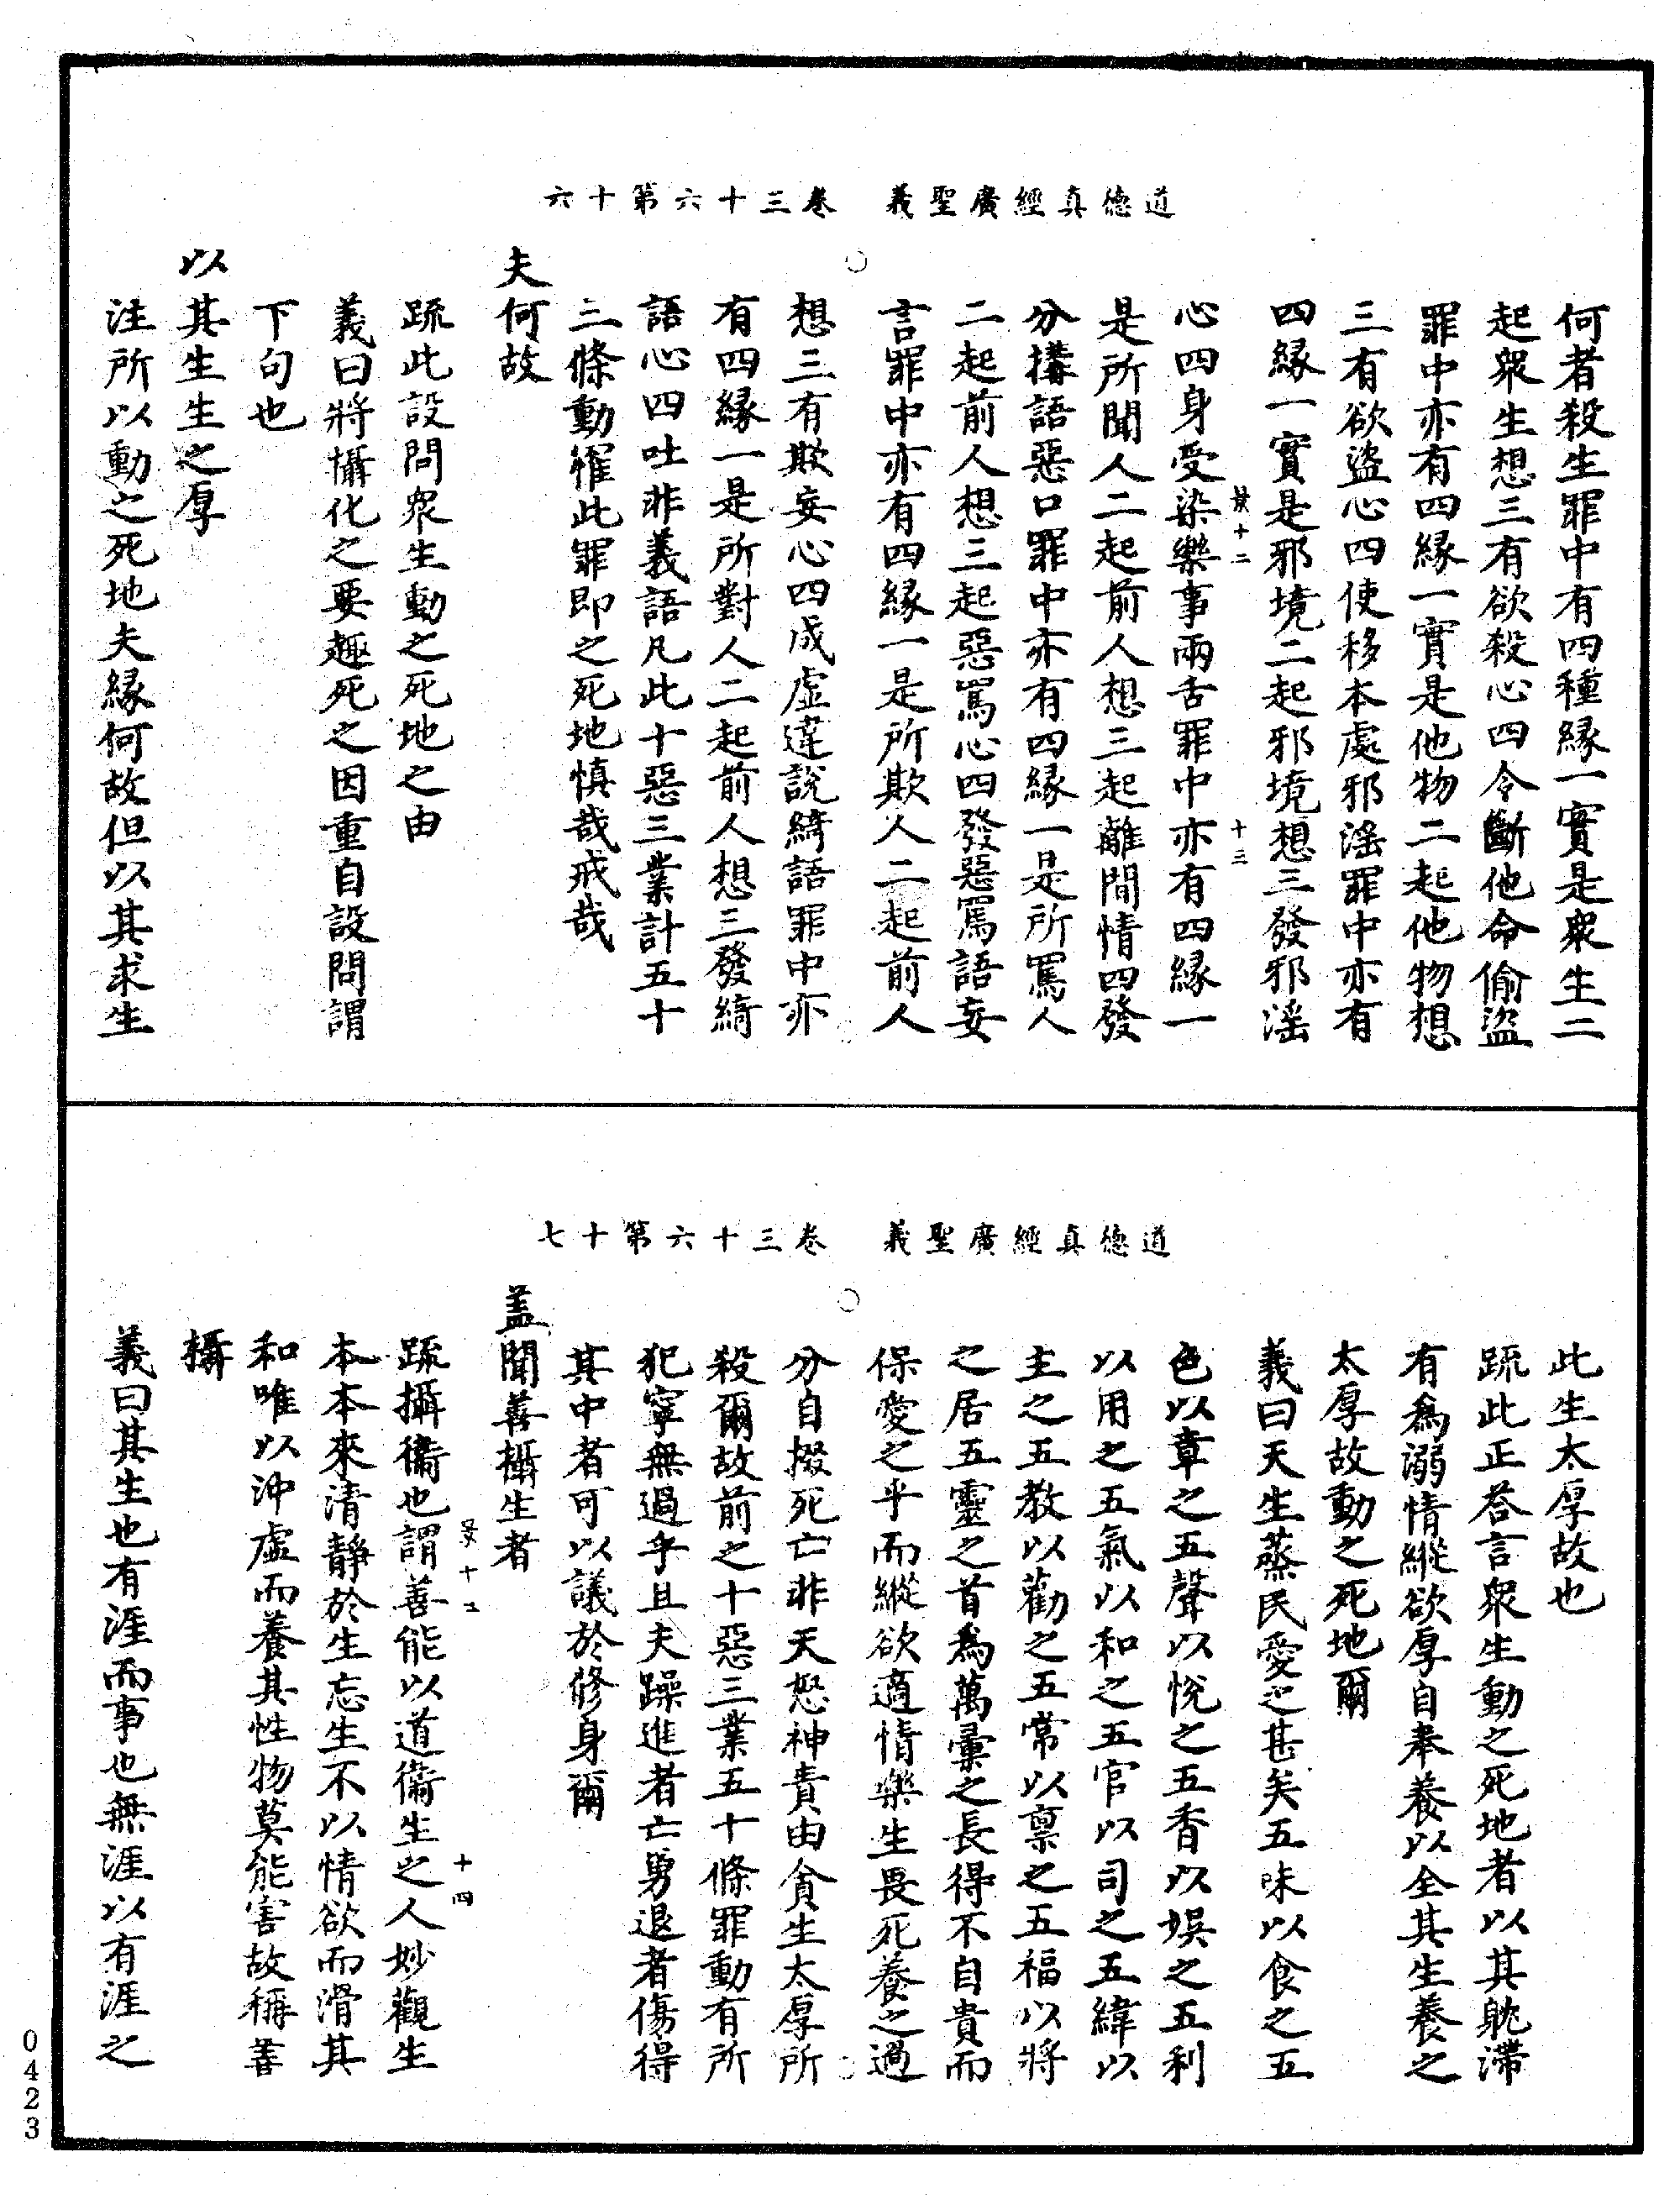 道德真經廣聖義　卷三十六第十六
何者殺生罪中有四種緣一實是衆生二
起衆生想三有欲殺心四令斷他命偷盜
罪中亦有四緣一實是他物二起他物想
三有欲盜心四使移本處邪滛罪中亦有
四緣一實是邪境二起邪境想三發邪滛
十三
心四身受染樂事兩舌罪中亦有四緣一
是所聞人二起前人想三起離間情四發
分搆語惡口罪中亦有四緣一是所罵人
二起前人想三起惡罵心四發惡罵語妄
言罪中亦有四緣一是所欺人二起前人
想三有欺妄心四成虛違說綺語罪中亦
有四緣一是所對人二起前人想三發綺
語心四吐非義語凡此十惡三業計五十
三條動罹此罪即之死地慎哉戒哉
夫何故
疏此設問衆生動之死地之由
義曰將懾化之要趣死之因重自設問謂
下句也
以其生生之厚
注所以動之死地夫緣何故但以其求生
道德真經廣聖義　卷三十六第十七
此生太厚故也
疏此正荅言衆生動之死地者以其躭滯
有爲溺情縱欲厚自奉養以全其生養之
太厚故動之死地爾
義曰天生蒸民愛之甚矣五味以食之五
色以章之五聲以悅之五香以娛之五利
以用之五氣以和之五官以司之五緯以
主之五教以勸之五常以禀之五福以將
之居五靈之首爲萬彙之長得不自貴而
保愛之乎而縱欲適情樂生畏死養之過
分自掇死亡非天怒神責由貪生太厚所
殺爾故前之十惡三業五十條罪動有所
犯寧無過乎且夫躁進者亡勇退者傷得
其中者可以議於修身爾
盖聞善攝生者
疏攝衛也謂善能以道衛生之人妙觀生
十四
本本來清靜於生忘生不以情欲而滑其
和唯以沖虛而養其性物莫能害故稱善
攝
義曰其生也有涯而事也無涯以有涯之
0423